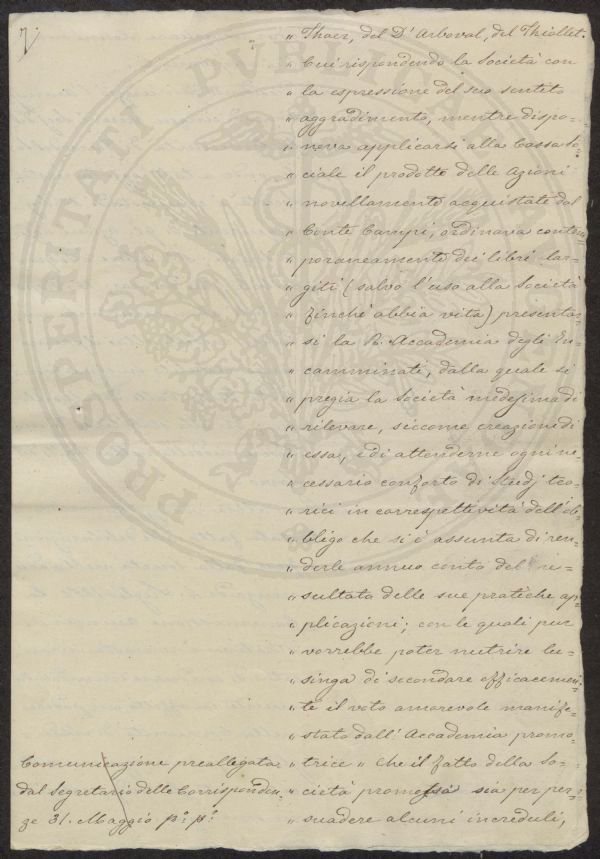 7
" Thaer, del D'Arboval, del Thiollet.
" Cui rispondendo la Società con
" la espressione del suo sentito
" aggradimento, mentre dispo=
" neva applicarsi alla Cassa So=
" ciale il prodotto delle Azioni
" novellamente acquistate dal
" Conte Campi, ordinava contem=
" poraneamente dei libri lar=
" giti (salvo l'uso alla Società
" finchè abbia vita) presentar=
" si la R. Accademia degli In=
" camminati, dalla quale si
" pregia la Società medesima di
" rilevare, siccome creazione di
" essa, e di attenderne ogni ne=
" cessario conforto di Studj teo=
" rici in correspettività dell'ob=
" bligo che si è assunta di ren=
" derle annuo conto del ri=
" sultato delle sue pratiche ap=
" plicazioni; con le quali pur
" vorrebbe poter nutrire lu=
" singa di secondare efficacemen=
" te il voto amorevole manife=
" stato dall'Accademia promo=
" trice " che il fatto della So=
" cietà promossa sia per per=
" suadere alcuni increduli,
Comunicazione preallegata
dal Segretario delle Corrisponden=
ze 31. Maggio p.° p.°
PROSPERITATI PVBLICAE